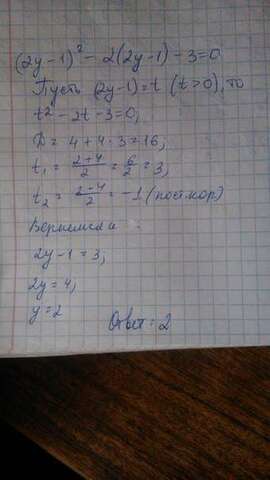 (2y-1)² - 2(2y-1) - 3 = 0
Пусть (2y-1) = t (t>0), то
t² - 2t - 3 = 0,
D = 4 + 4·3 = 16,
t₁ = (2+4)/2 = 6/2 = 3,
t₂ = (2-4)/2 = -1
Вернемся :
2y-1 = 3,
2y = 4,
y = 2
Ответ: 2